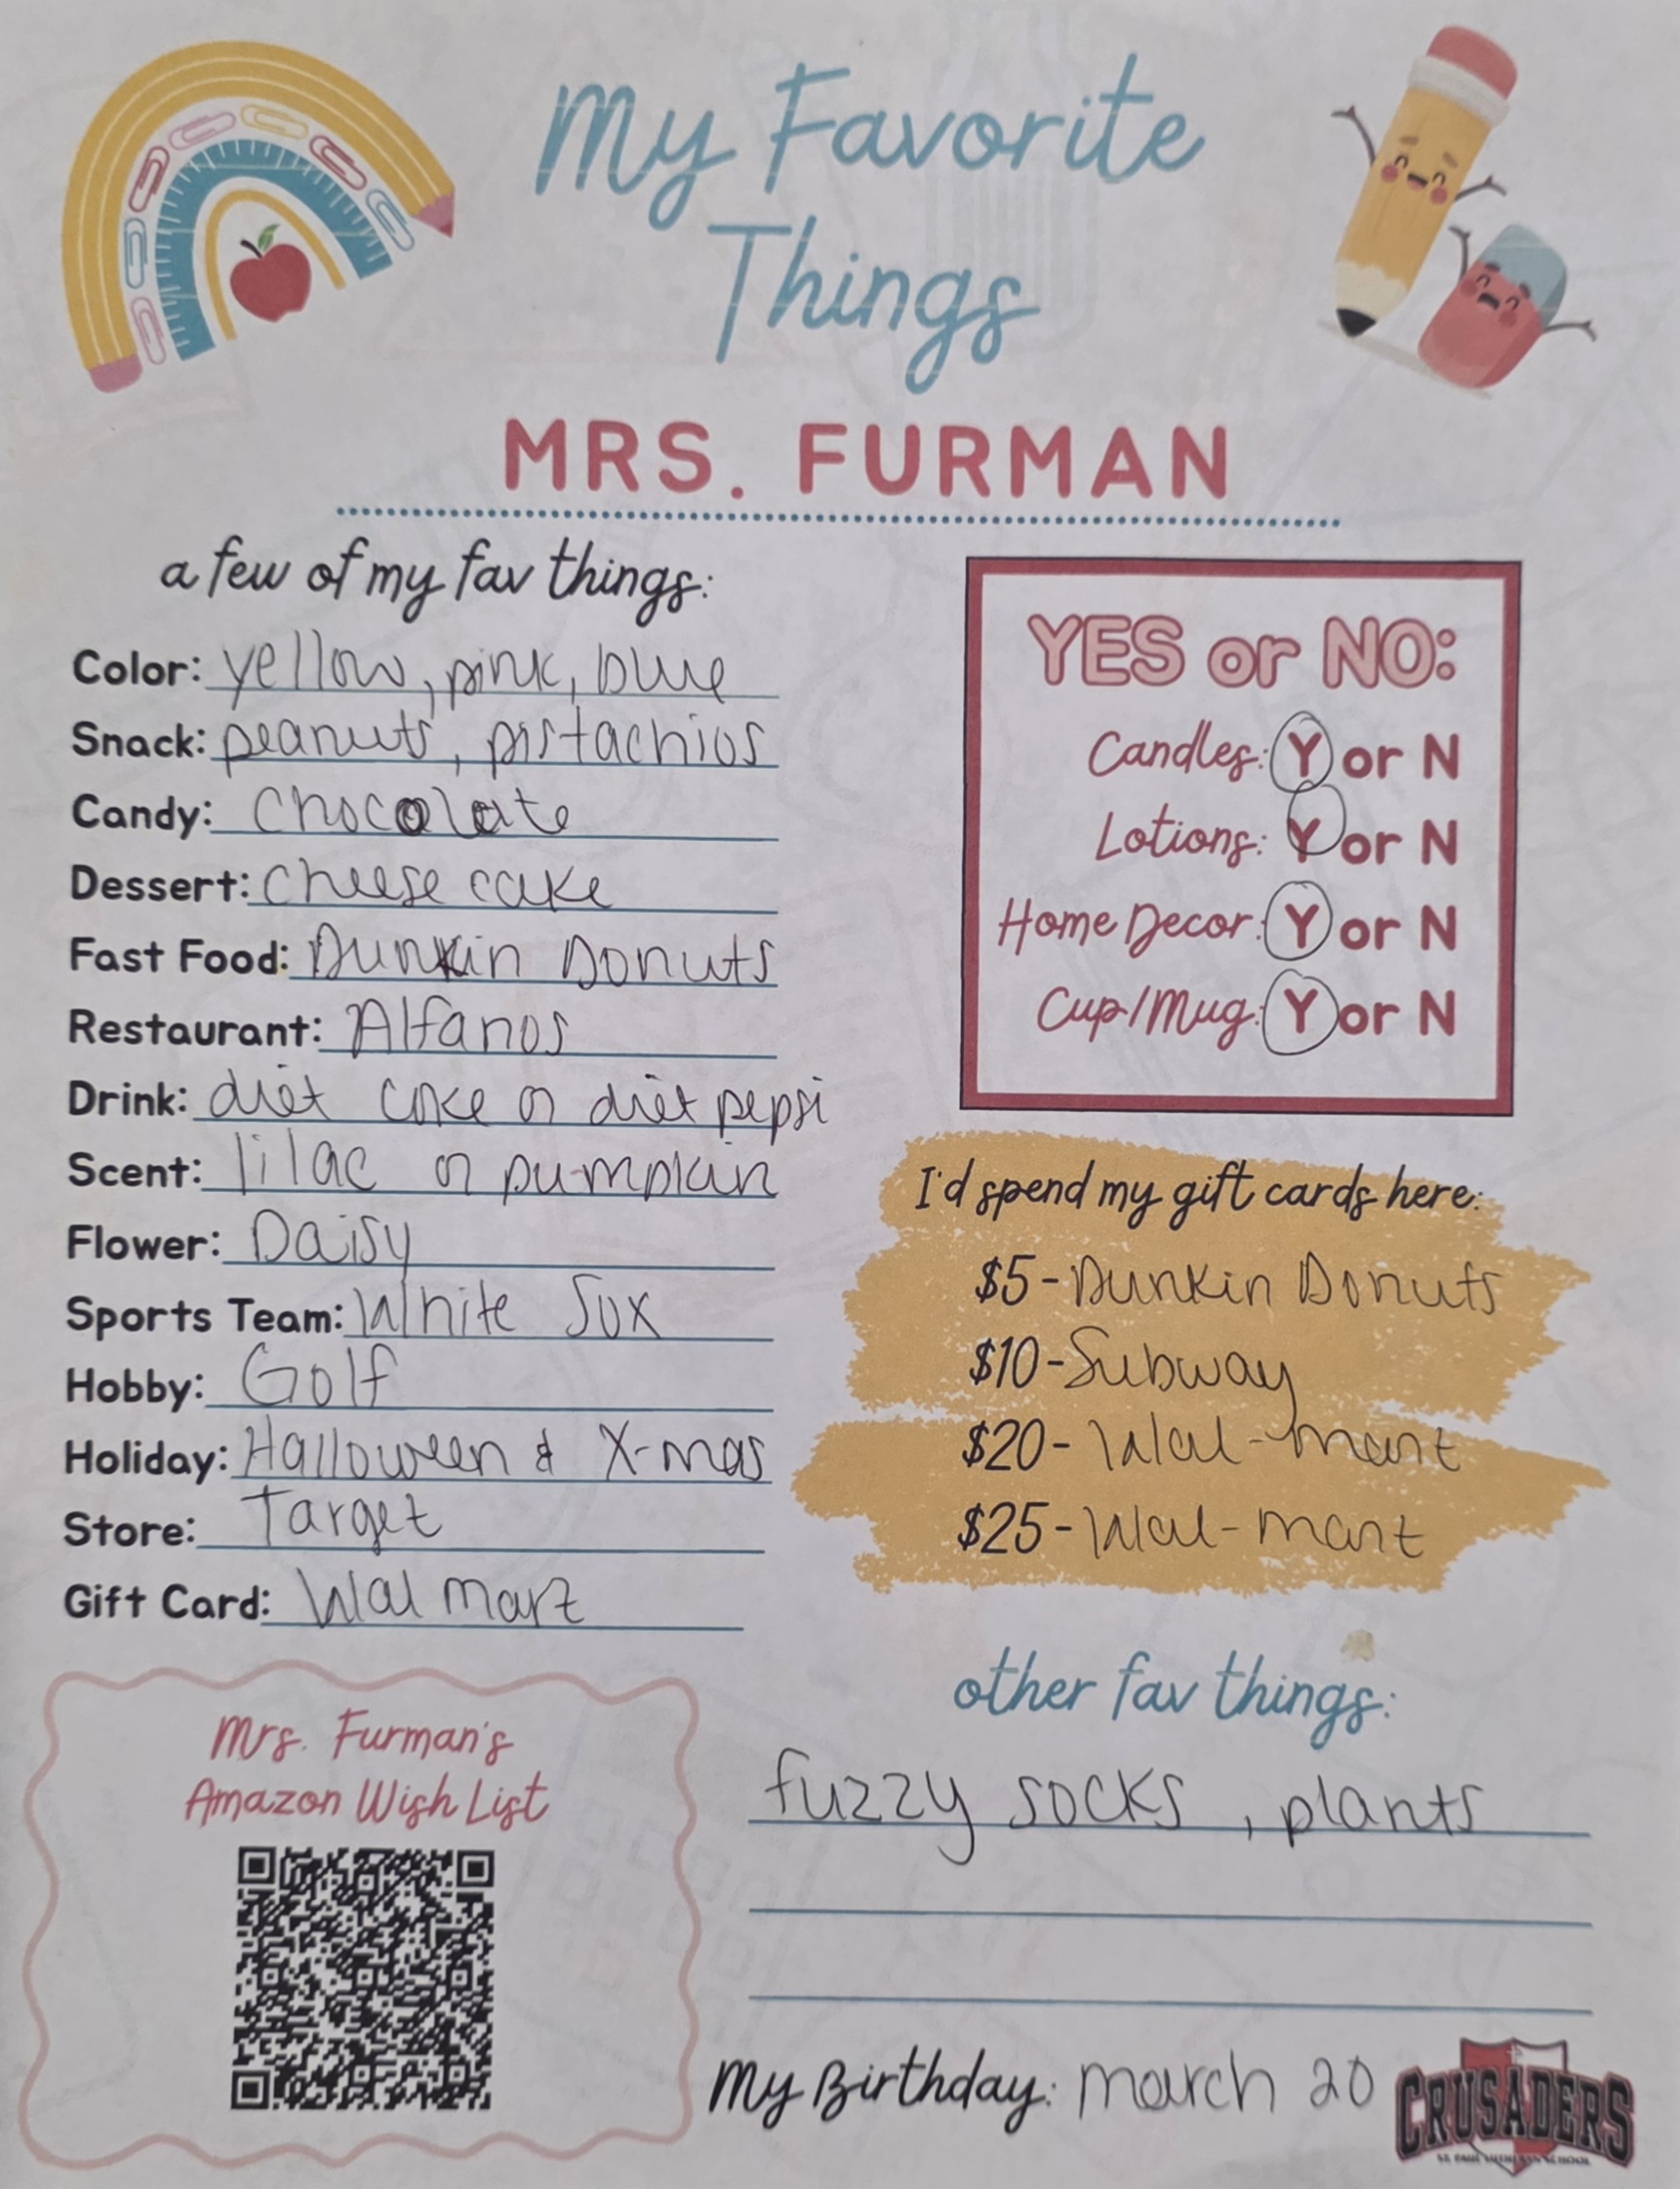 My Favorite
Things
MRS. FURMAN
a few of my fav things:
Color: yellow, pink, blue
Snack: peanuts, pistachios
Candy: chocolate
Dessert: cheese cake
Fast Food: Dunkin Donuts
Restaurant: Alfanos
Drink: diet coke or diet pepsi
Scent: lilac or pumpkin
Flower: Daisy
Sports Team: White Sox
Hobby: Golf
Holiday: Halloween & X-mas
Store: Target
Gift Card: Wal mart
YES or NO:
Candles: Y or N
Lotions: Y or N
Home Decor: Y or N
Cup/Mug: Y or N
I'd spend my gift cards here:
$5 - Dunkin Donuts
$10 - Subway
$20 - Wal-mart
$25 - Wal-mart
other fav things:
fuzzy socks, plants
Mrs. Furman's
Amazon Wish List
My Birthday: march 20
CRUSADERS
ST. PAUL LUTHERAN SCHOOL